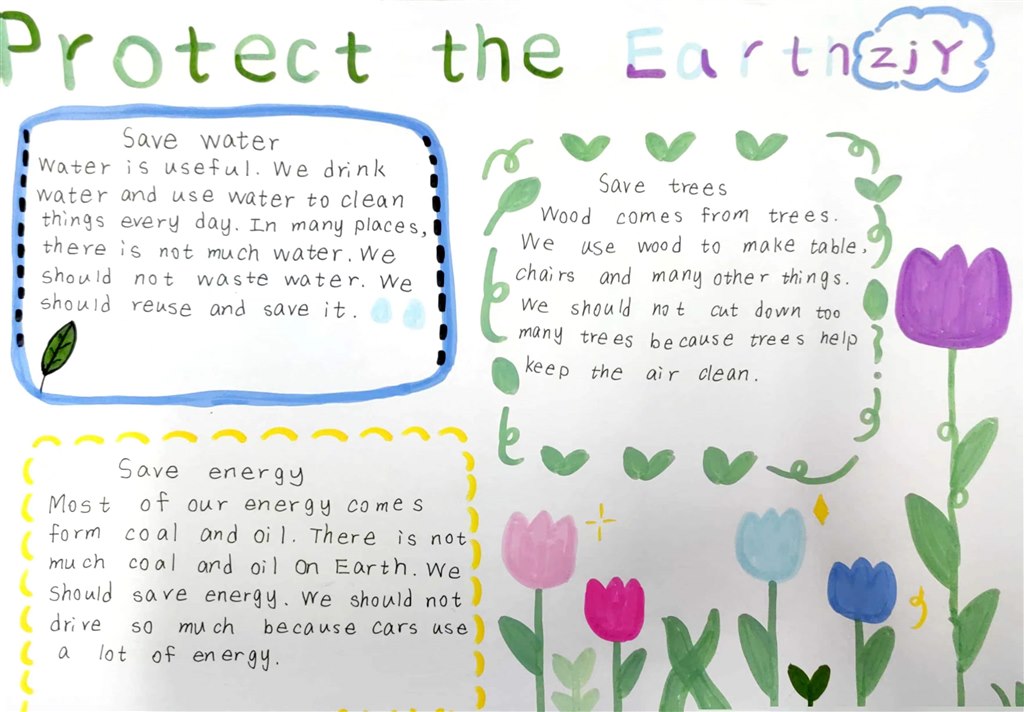 Protect the Earth
zjY
Save water
Water is useful. We drink
water and use water to clean
things every day. In many places,
there is not much water. We
should not waste water. We
should reuse and save it.
Save trees
Wood comes from trees.
We use wood to make table,
chairs and many other things.
We should not cut down too
many trees because trees help
keep the air clean.
Save energy
Most of our energy comes
form coal and oil. There is not
much coal and oil On Earth. We
Should save energy. We should not
drive so much because cars use
a lot of energy.